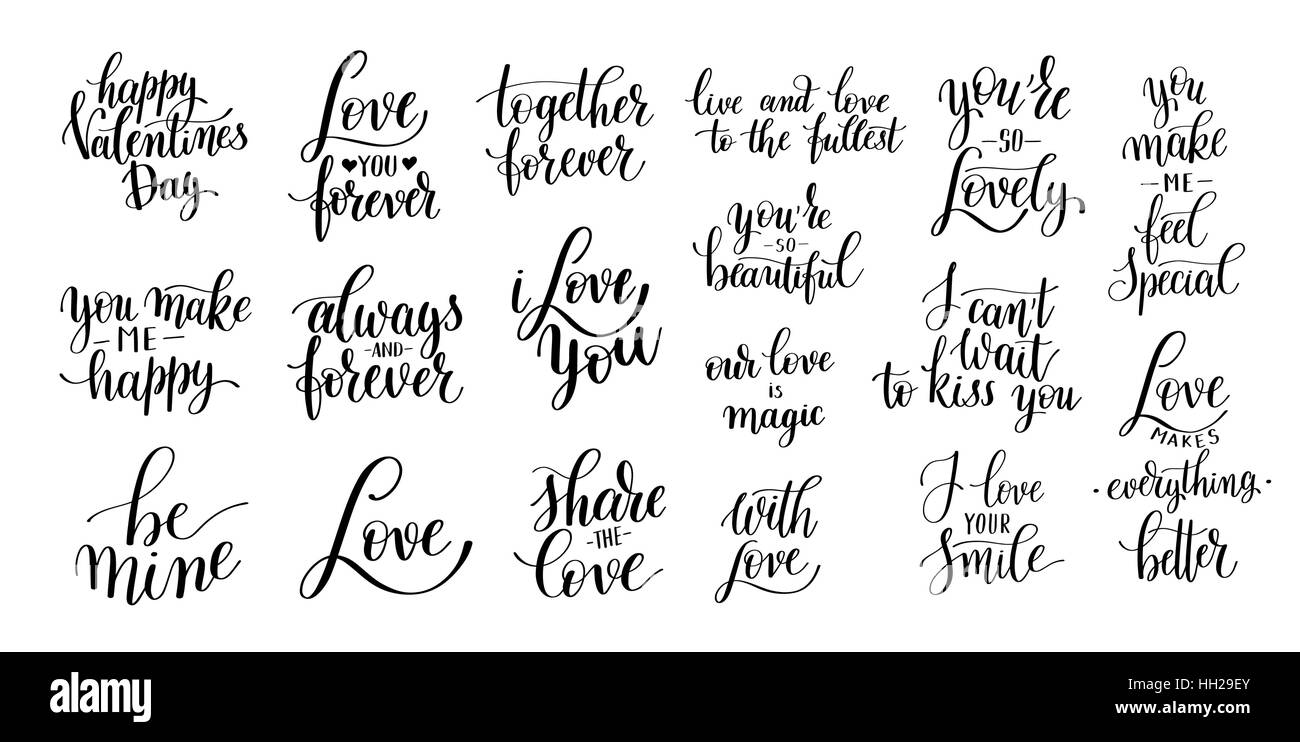 happy
Valentines
Day
Love
YOU
forever
together
forever
live and love
to the fullest
you're
SO
Lovely
you
make
ME
feel
Special
you're
SO
beautiful
you make
ME
happy
always
AND
forever
i Love
You
I can't
wait
to kiss you
our love
is
magic
Love
MAKES
everything
better
be
mine
Love
share
THE
love
with
Love
I love
YOUR
Smile
a
alamy
a
a
alamy stock photo
HH29EY
www.alamy.com